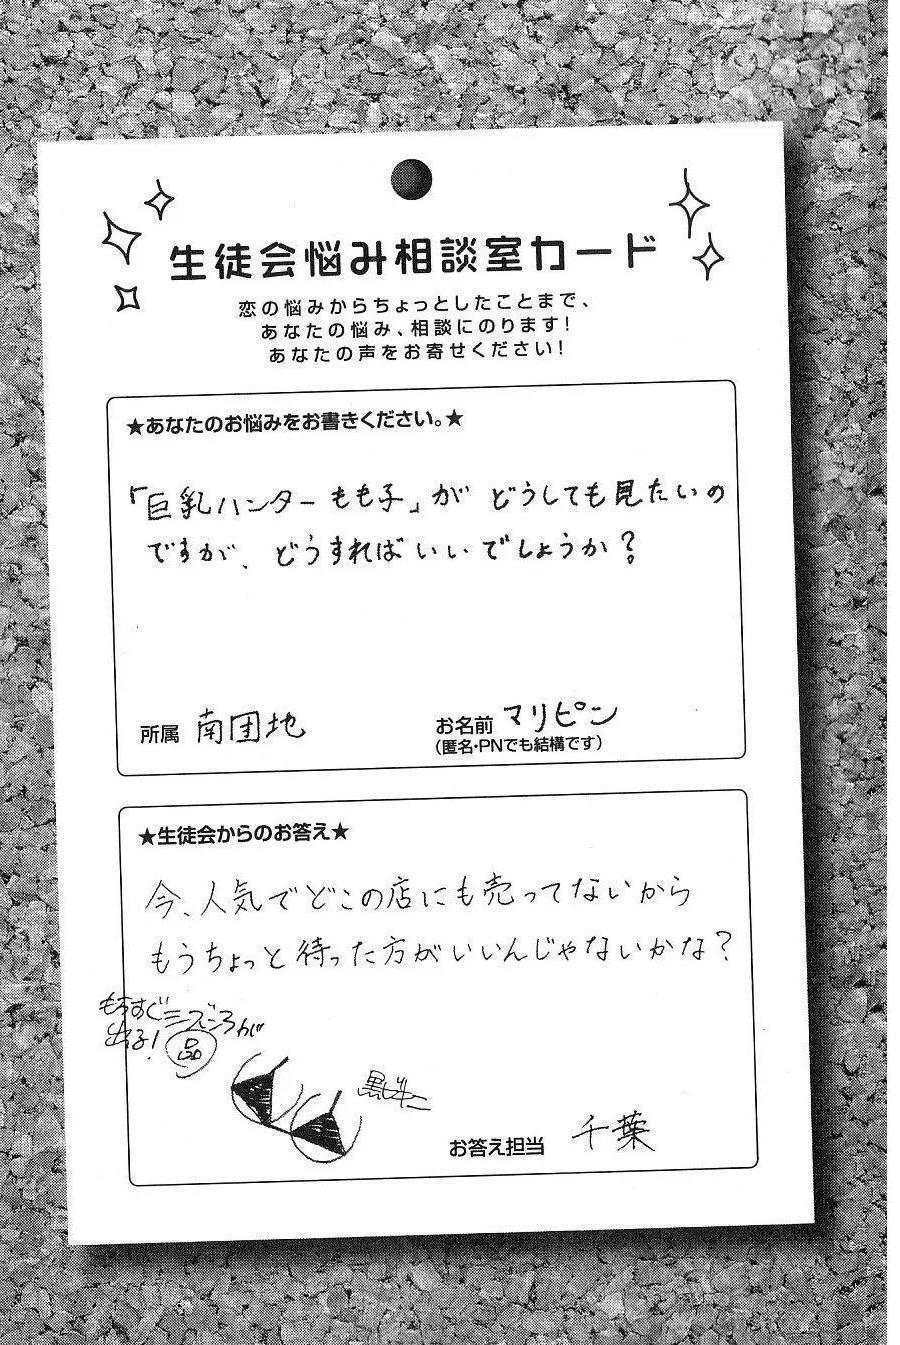 生徒会悩み相談室カード
恋の悩みからちょっとしたことまで、
あなたの悩み、相談にのります!
あなたの声をお寄せください!
★あなたのお悩みをお書きください。★
「巨乳ハンターもも子」が どうしても見たいの
ですが、どうすればいいでしょうか?
所属 南団地
お名前 マリピン
(匿名・PNでも結構です)
★生徒会からのお答え★
今、人気でどこの店にも売ってないから
もうちょっと待った方がいいんじゃないかな?
もうすぐ
出る!
品
黒ビキニ
お答え担当 千葉